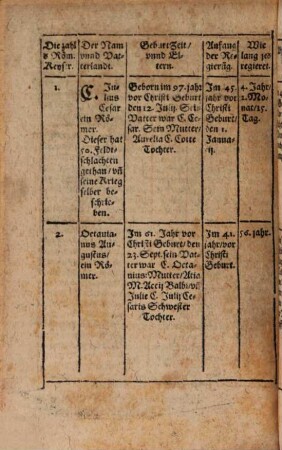 Die zahl
d Röm.
Keyser.
Der Nam
vnnd Vat-
terlandt.
Geburt Zeit/
vnnd El-
tern.
Anfang
der Re-
gierūg.
Wie
lang je-
regieret.
1.
C. Ju-
lius
Cesar
ein Rö-
mer.
Dieser hat
50. Feldt-
schlachten
gethan/ vñ
seine Krieg
selber be-
schrie-
ben.
Geborn im 97. jahr
vor Christi Geburt
den 12. Julij. Sein
Vatter war C. Ce-
sar. Sein Mutter/
Aurelia C. Cotte
Tochter.
Im 45.
jahr vor
Christi
Geburt/
den 1.
Janna-
rij.
4. Jahr/
2. Mo-
nat/15.
Tag.
2.
Octauia-
nus Au-
gustus/
ein Rö-
mer.
Im 61. Jahr vor
Christi Geburt/ den
23. Sept. sein Vat-
ter war C. Octa-
nius: Mutter/Atia
M. Accij Balbi/ vñ
Julie C. Julij Ce-
saris Schwester
Tochter.
Im 41.
jahr/vor
Christi
Geburt.
56. jahr.